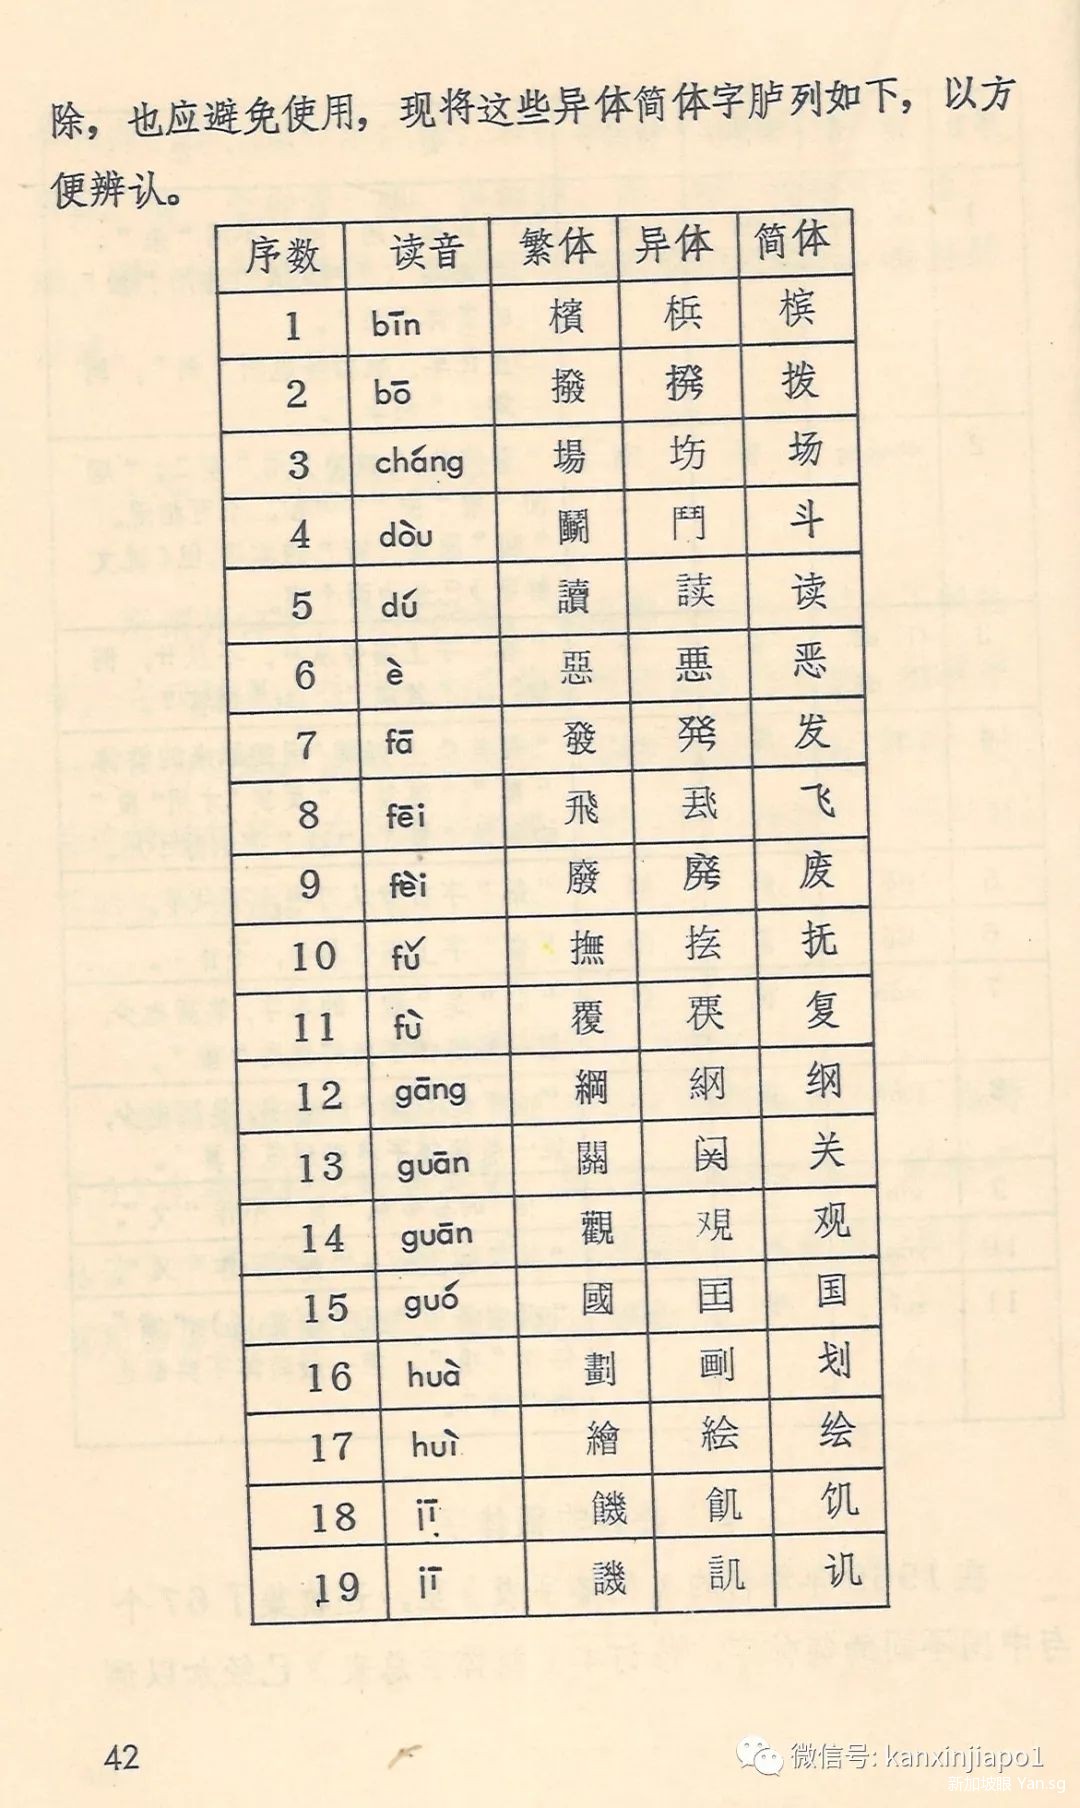 除，也应避免使用，现将这些异体简体字胪列如下，以方
便辨认。
序数 读音 繁体 异体 简体
1 bīn 檳 梹 槟
2 bō 撥 拨
3 cháng 場 场
4 dòu 鬭 鬥 斗
5 dú 讀 读
6 è 惡 悪 恶
7 fā 發 発 发
8 fēi 飛 飞
9 fèi 廢 廃 废
10 fǔ 撫 抚
11 fù 覆 复
12 gāng 綱 纲
13 guān 關 关
14 guān 觀 覌 观
15 guó 國 囯 国
16 huà 劃 㓰 划
17 huì 繪 絵 绘
18 jī 饑 飢 饥
19 jī 譏 讥
42
微信号: kanxinjiapo1
新加坡眼 Yan.sg